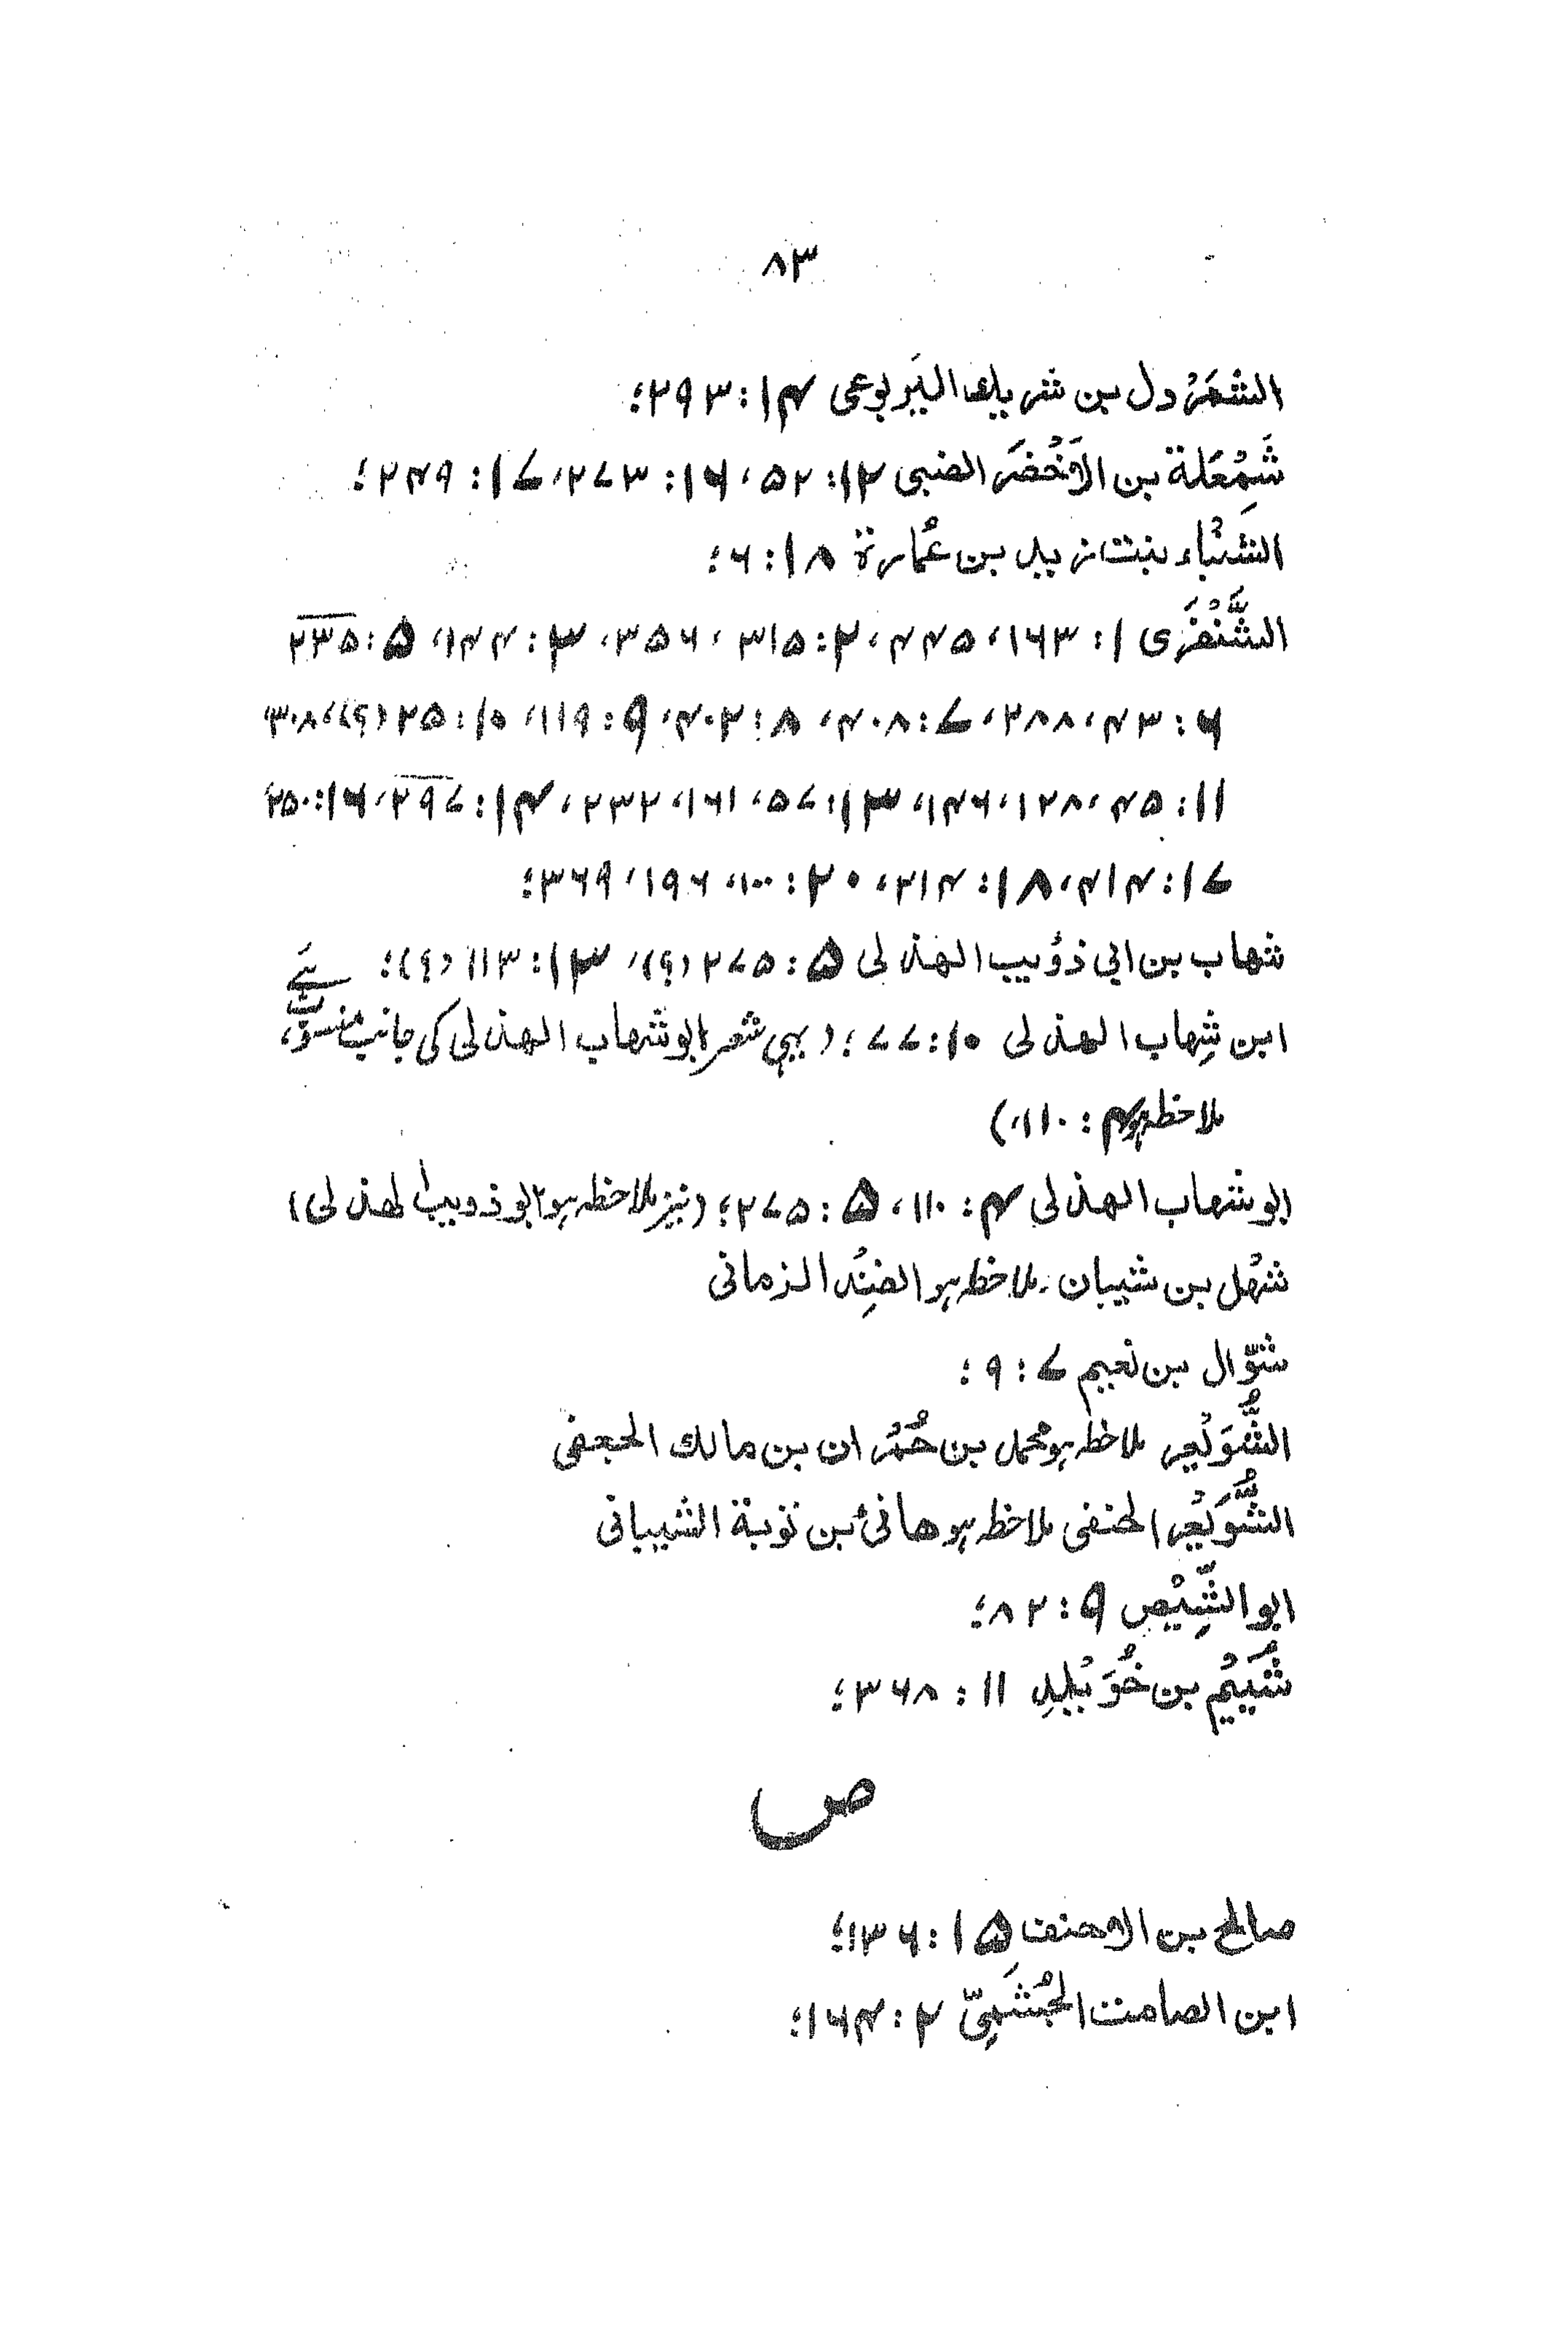 ۸۳
الشَمَرْدل بن شریك الیَربوعی ۱۴: ۲۹۳؛
شَمِعْلة بن الاَخْضَر الضبی ۱۲: ۵۲، ۱۶: ۲۷۳، ۱۷: ۲۴۹؛
الشنْباء بنت زید بن عُمارة ۱۸: ۶؛
الشَّنْفَرَی ۱: ۱۶۳، ۴۴۵، ۲: ۳۱۵، ۳۵۶، ۳: ۱۴۴، ۵: ۲۳۵
۶: ۴۳، ۲۸۸، ۷: ۴۰۸، ۸: ۴۰۲، ۹: ۱۱۹، ۱۰: ۲۵ (؟)، ۳۰۸،
۱۱: ۴۵، ۱۲۸، ۱۴۶، ۱۳: ۵۷، ۱۶۱، ۲۳۲، ۱۴: ۲۹۷، ۱۶: ۲۵۰
۱۷: ۴۱۴، ۱۸: ۲۱۴، ۲۰: ۱۰۰، ۱۹۶، ۳۶۹؛
شهاب بن ابی ذؤیب الهذلی ۵: ۲۷۵ (؟)، ۱۳: ۱۱۳ (؟)؛
ابن شِهاب الهذلی ۱۰: ۷۷؛ (یہی شعر ابو شهاب الهذلی کی جانب منسوب ہے،
ملاحظہ ہو ۴: ۱۱۰،)
ابو شهاب الهذلی ۴: ۱۱۰، ۵: ۲۷۵؛ (نیز ملاحظہ ہو ابو ذویب الهذلی)
شهْل بن شیبان ۔ ملاحظہ ہو الفِنْد الزمانی
شوّال بن نعیم ۷: ۹؛
الشُّوَیْعِر ملاحظہ ہو محمد بن حُمْران بن مالك الجعفی
الشُّوَیْعِر الحنفی ملاحظہ ہو هانیٔ بن توبة الشیبانی
ابو الشِّیْص ۹: ۸۲؛
شُیَیْم بن خُوَیْلِد ۱۱: ۳۶۸؛
ص
صالح بن الاحنف ۱۵: ۱۳۶؛
ابن الصامت الجُشَمِیّ ۲: ۱۶۴؛